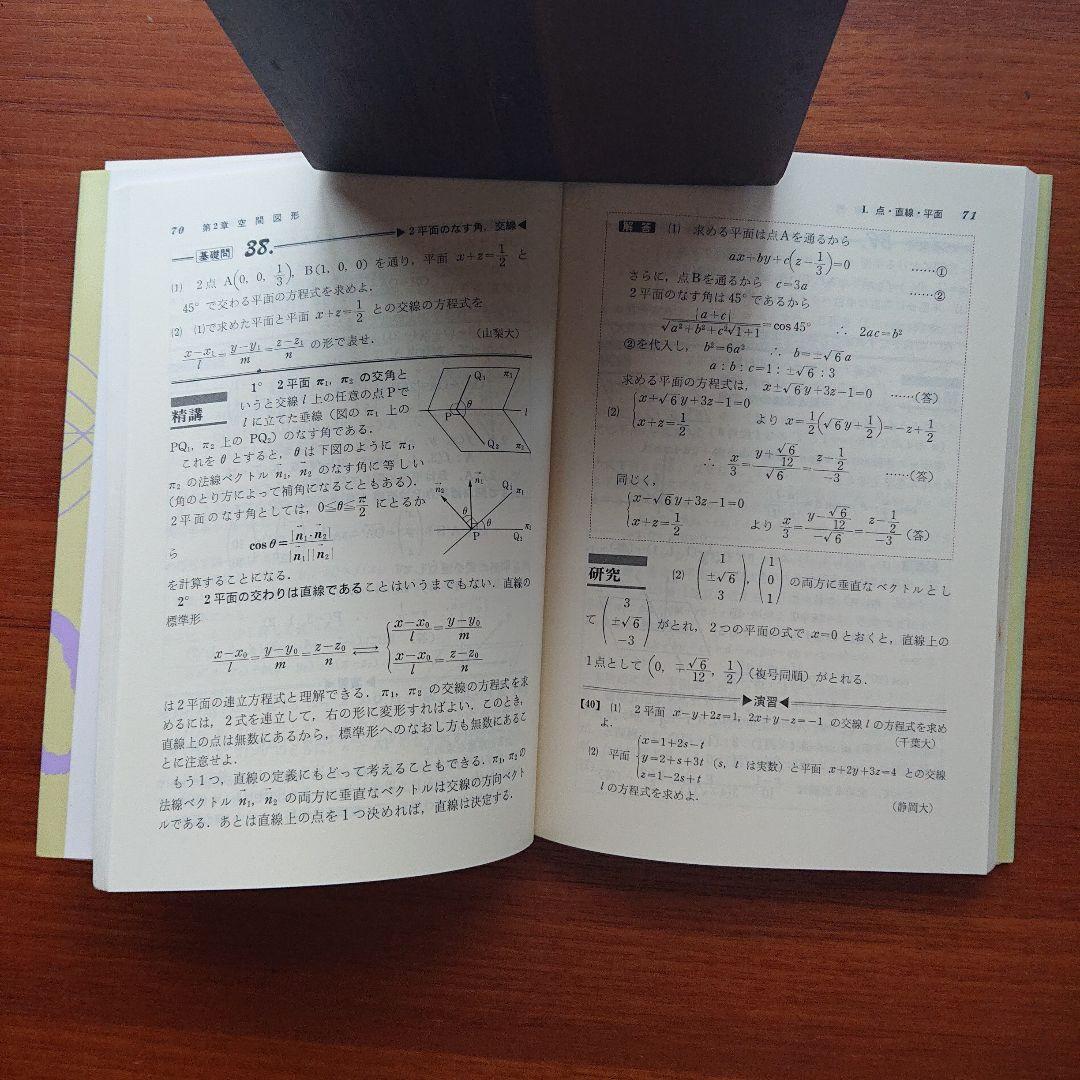 70 第2章 空 間 図 形
基礎問 38. ▶2平面のなす角,交線◀
(1) 2点 A(0, 0, 1/3), B(1, 0, 0) を通り,平面 x+z=1/2 と
45°で交わる平面の方程式を求めよ.
(2) (1)で求めた平面と平面 x+z=1/2 との交線の方程式を
(x-x₁)/l=(y-y₁)/m=(z-z₁)/n の形で表せ. (山梨大)
精講 1° 2平面 π₁, π₂ の交角と
いうと交線 l 上の任意の点Pで
l に立てた垂線(図の π₁ 上の
PQ₁, π₂ 上の PQ₂)のなす角である.
これを θ とすると,θ は下図のように π₁,
π₂ の法線ベクトル n₁, n₂ のなす角に等しい
(角のとり方によって補角になることもある).
2平面のなす角としては,0≦θ≦π/2 にとるか
ら cosθ=|n₁·n₂|/|n₁||n₂|
を計算することになる.
2° 2平面の交わりは直線であることはいうまでもない.直線の
標準形
(x-x₀)/l=(y-y₀)/m=(z-z₀)/n ⟺ { (x-x₀)/l=(y-y₀)/m
(x-x₀)/l=(z-z₀)/n
は2平面の連立方程式と理解できる.π₁, π₂ の交線の方程式を求
めるには,2式を連立して,右の形に変形すればよい.このとき,
直線上の点は無数にあるから,標準形へのなおし方も無数にあるこ
とに注意せよ.
もう1つ,直線の定義にもどって考えることもできる.π₁, π₂ の
法線ベクトル n₁, n₂ の両方に垂直なベクトルは交線の方向ベクト
ルである.あとは直線上の点を1つ決めれば,直線は決定する.
Q₁
π₁
P
θ
l
Q₂
π₂
n₂
n₁
Q₁
π₁
θ
θ
P
π₁
Q₂
I. 点・直線・平面 71
解 答 (1) 求める平面は点Aを通るから
ax+by+c(z-1/3)=0 ……①
さらに,点Bを通るから c=3a ……②
2平面のなす角は45°であるから
|a+c|/(√(a²+b²+c²)√(1+1))=cos45° ∴ 2ac=b²
②を代入し,b²=6a² ∴ b=±√6a
a:b:c=1:±√6:3
求める平面の方程式は,x±√6y+3z-1=0 ……(答)
(2) { x+√6y+3z-1=0
x+z=1/2 より x=1/2(√6y+1/2)=-z+1/2
∴ x/3=(y+√6/12)/√6=(z-1/2)/-3 ……(答)
同じく,
{ x-√6y+3z-1=0
x+z=1/2 より x/3=(y-√6/12)/-√6=(z-1/2)/-3 (答)
研究 (2) (1 ±√6 3), (1 0 1) の両方に垂直なベクトルとし
て (3 ±√6 -3) がとれ,2つの平面の式で x=0 とおくと,直線上の
1点として (0, ∓√6/12, 1/2) (複号同順) がとれる.
▶演習◀
【40】 (1) 2平面 x-y+2z=1, 2x+y-z=-1 の交線 l の方程式を求め
よ. (千葉大)
(2) 平面 { x=1+2s-t
y=2+s+3t (s, t は実数)と平面 x+2y+3z=4 との交線
z=1-2s+t
l の方程式を求めよ. (静岡大)